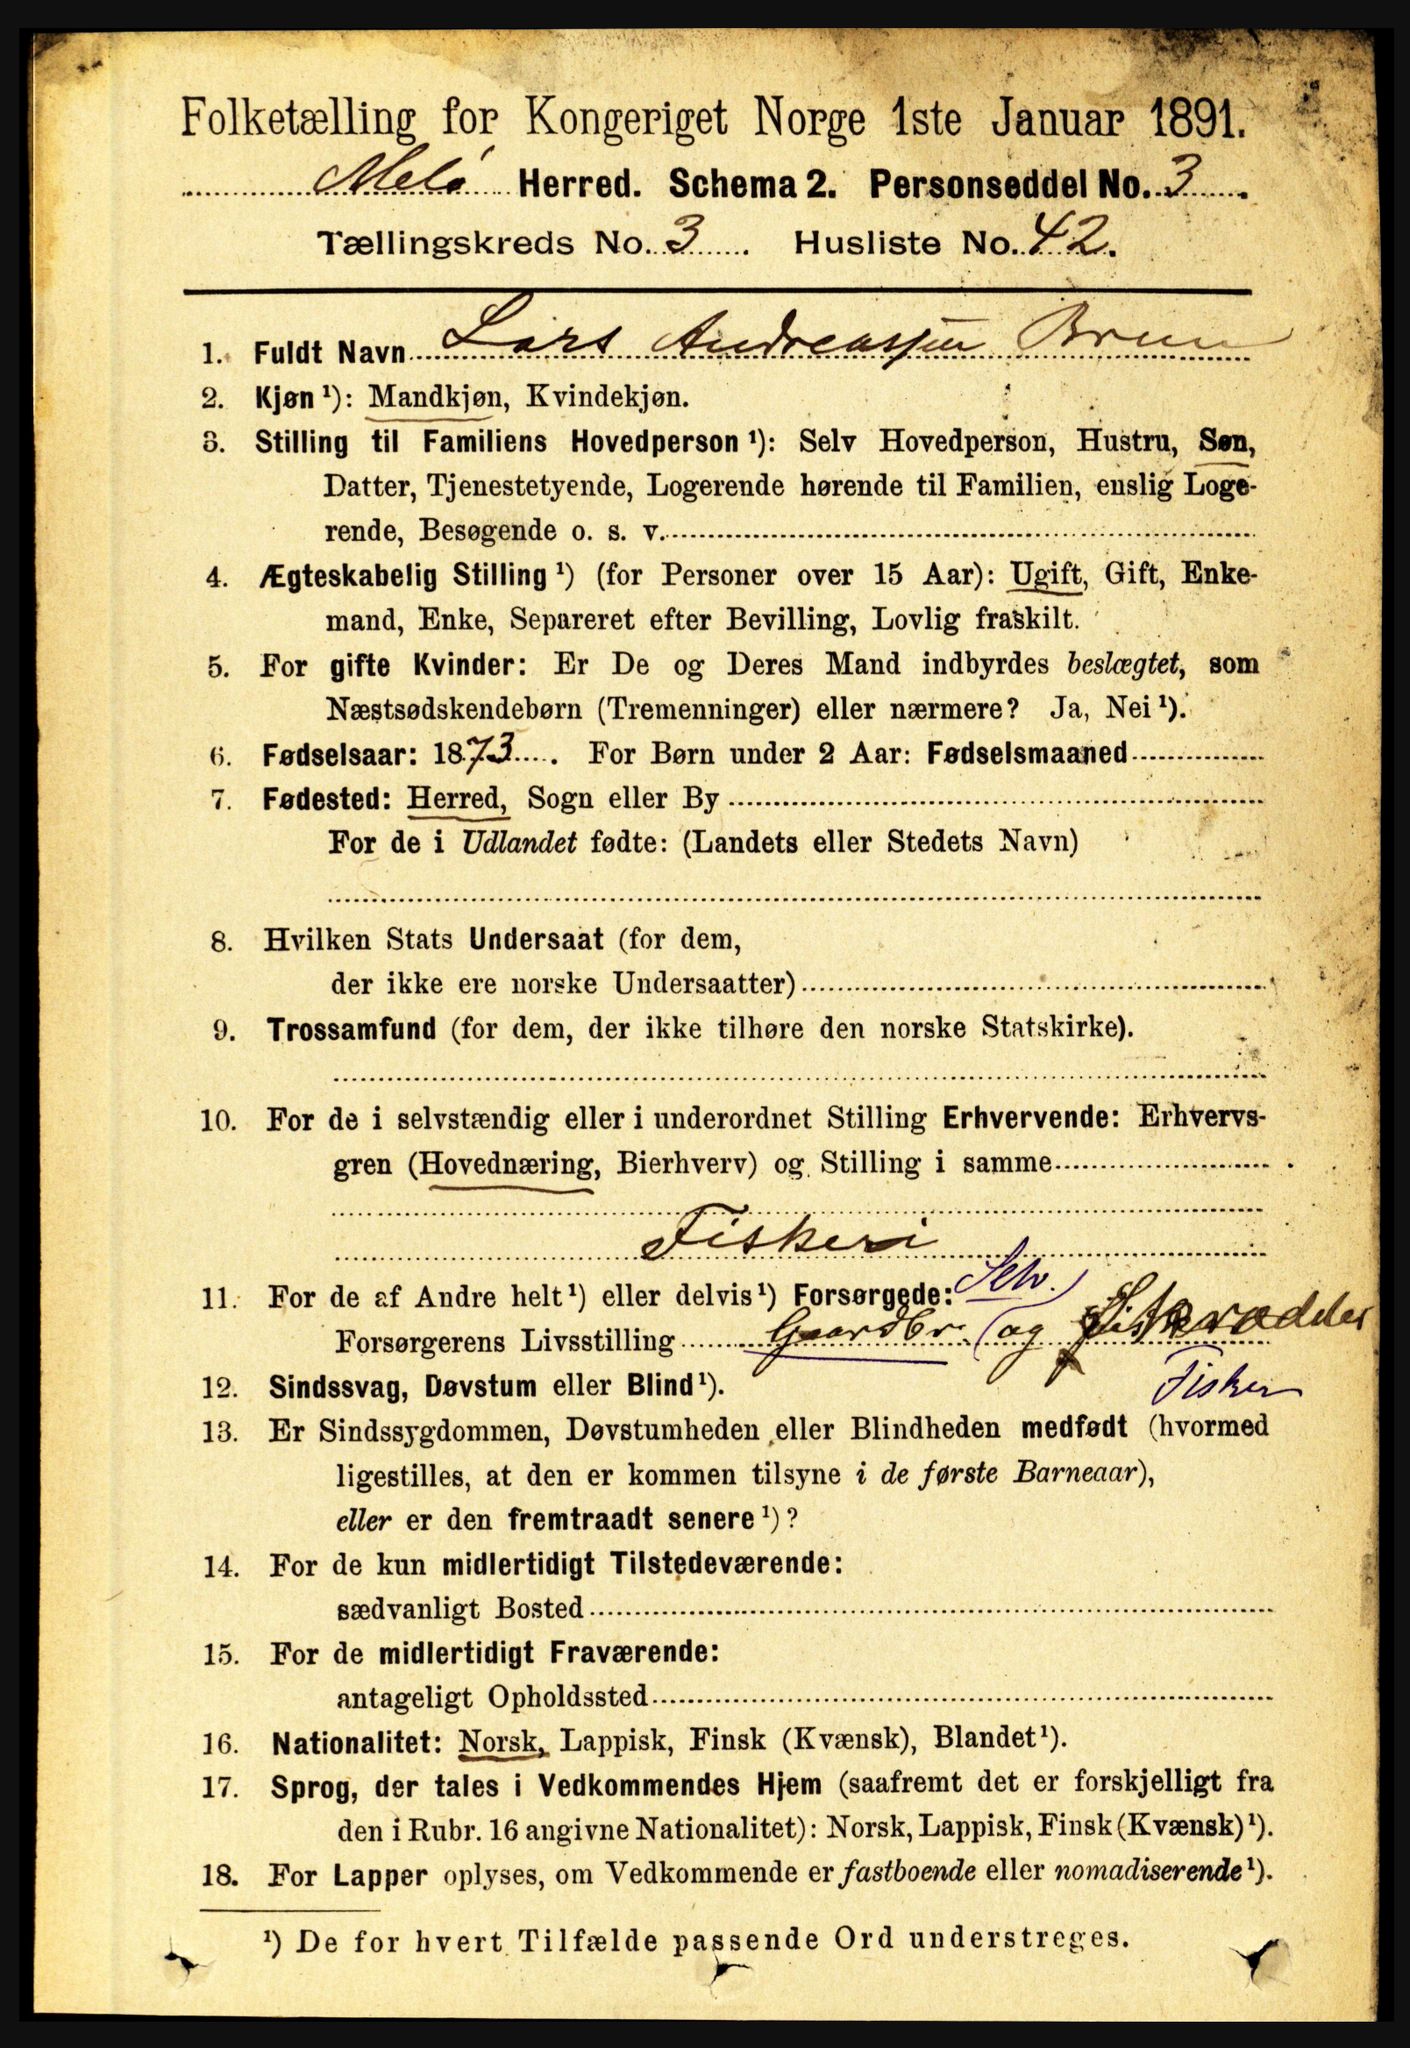 Folketælling for Kongeriget Norge 1ste Januar 1891.
Melø Herred. Schema 2. Personseddel No. 3.
Tællingskreds No. 3. Husliste No. 42.
1. Fuldt Navn Lars Andreassen Brun
2. Kjøn ¹): Mandkjøn, Kvindekjøn.
3. Stilling til Familiens Hovedperson ¹): Selv Hovedperson, Hustru, Søn,
Datter, Tjenestetyende, Logerende hørende til Familien, enslig Loge-
rende, Besøgende o. s. v.
4. Ægteskabelig Stilling ¹) (for Personer over 15 Aar): Ugift, Gift, Enke-
mand, Enke, Separeret efter Bevilling, Lovlig fraskilt.
5. For gifte Kvinder: Er De og Deres Mand indbyrdes beslægtet, som
Næstsødskendebørn (Tremenninger) eller nærmere? Ja, Nei ¹).
6. Fødselsaar: 1873. For Børn under 2 Aar: Fødselsmaaned
7. Fødested: Herred, Sogn eller By
For de i Udlandet fødte: (Landets eller Stedets Navn)
8. Hvilken Stats Undersaat (for dem,
der ikke ere norske Undersaatter)
9. Trossamfund (for dem, der ikke tilhøre den norske Statskirke).
10. For de i selvstændig eller i underordnet Stilling Erhvervende: Erhvervs-
gren (Hovednæring, Bierhverv) og Stilling i samme
Fiskeri
11. For de af Andre helt ¹) eller delvis ¹) Forsørgede: Selv.
Forsørgerens Livsstilling Gaardbr. og
Fisker
12. Sindssvag, Døvstum eller Blind ¹).
13. Er Sindssygdommen, Døvstumheden eller Blindheden medfødt (hvormed
ligestilles, at den er kommen tilsyne i de første Barneaar),
eller er den fremtraadt senere ¹)?
14. For de kun midlertidigt Tilstedeværende:
sædvanligt Bosted
15. For de midlertidigt Fraværende:
antageligt Opholdssted
16. Nationalitet: Norsk, Lappisk, Finsk (Kvænsk), Blandet ¹).
17. Sprog, der tales i Vedkommendes Hjem (saafremt det er forskjelligt fra
den i Rubr. 16 angivne Nationalitet): Norsk, Lappisk, Finsk (Kvænsk) ¹).
18. For Lapper oplyses, om Vedkommende er fastboende eller nomadiserende ¹).
¹) De for hvert Tilfælde passende Ord understreges.